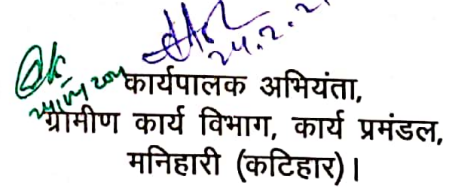 24.2.2
कार्यपालक अभियंता,
ग्रामीण कार्य विभाग, कार्य प्रमंडल,
मनिहारी (कटिहार)।